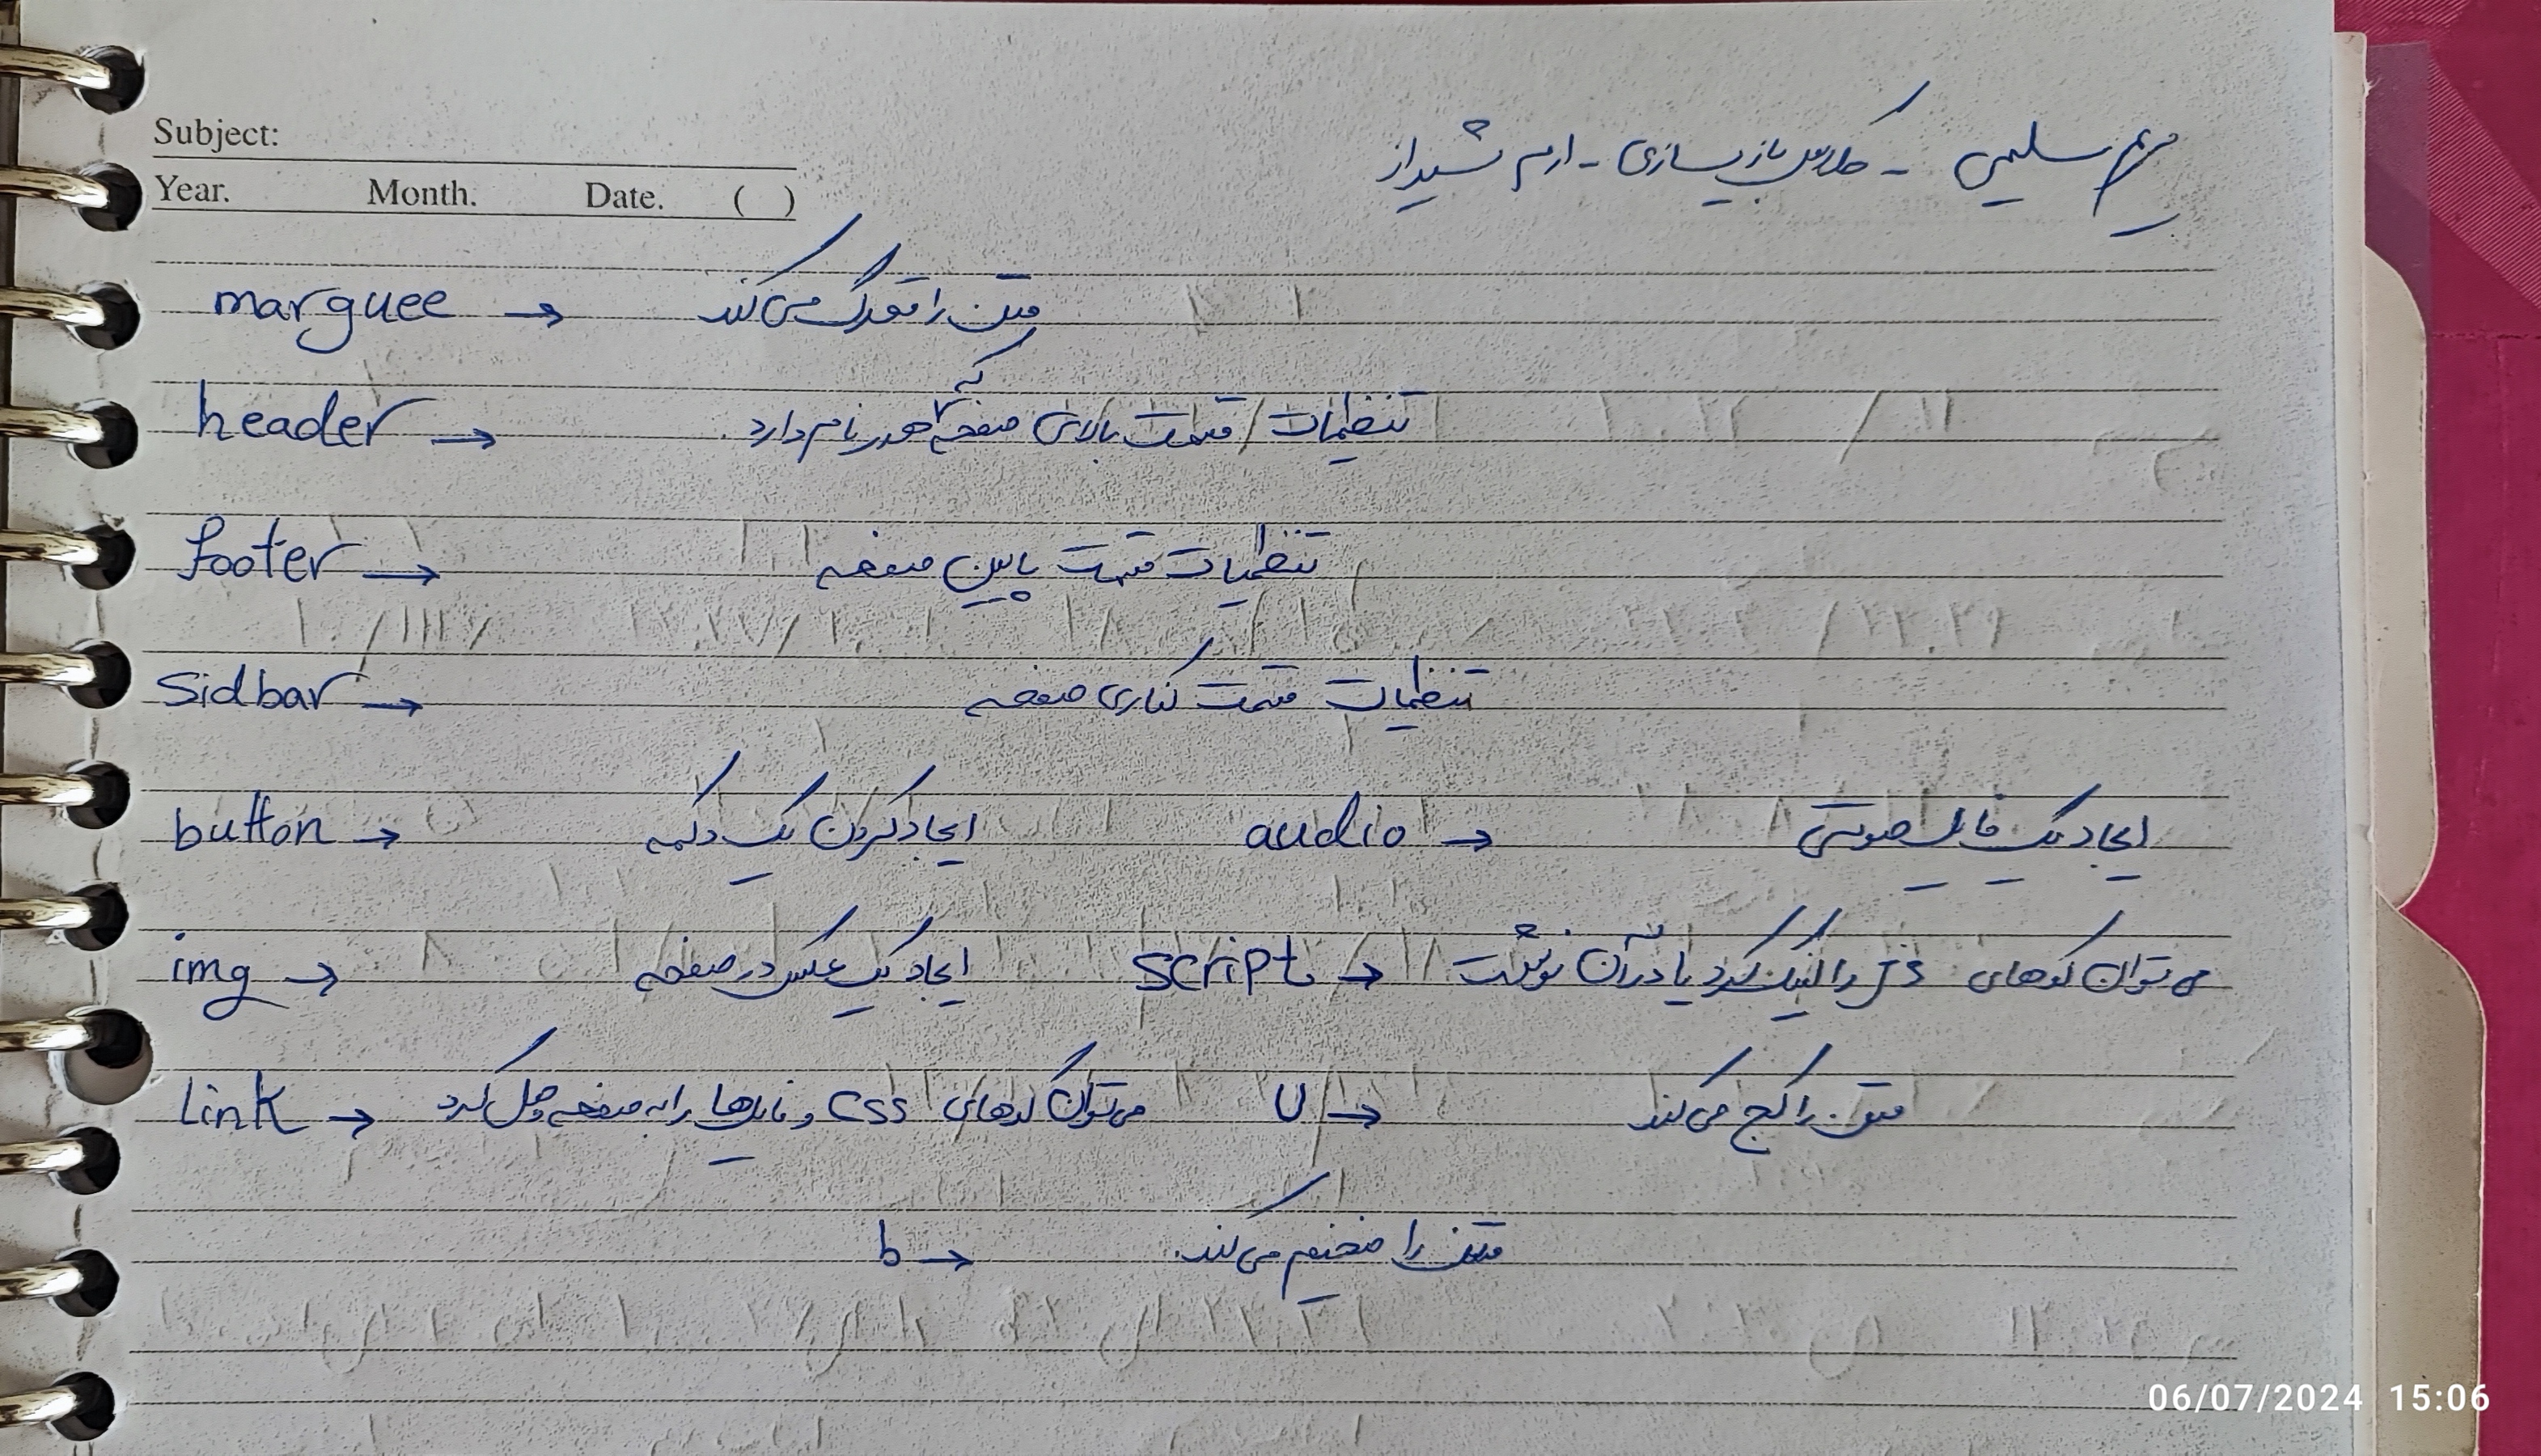 Subject:
مریم سلیمی - کلاس بازیسازی - ارم شیراز
Year. Month. Date. ( )
marguee → متن را متحرک می‌کند
header → تنظیمات قسمت بالای صفحه که هدر نام دارد.
footer → تنظیمات قسمت پایین صفحه
Sidbar → تنظیمات قسمت کناری صفحه
button → ایجاد کردن یک دکمه audio → ایجاد یک فایل صوتی
img → ایجاد یک عکس در صفحه script → می‌توان کدهای JS را لینک کرد یا در آن نوشت
Link → می‌توان کدهای css و فایل‌ها را به صفحه وصل کرد U → متن را کج می‌کند
b → متن را ضخیم می‌کند.
06/07/2024 15:06